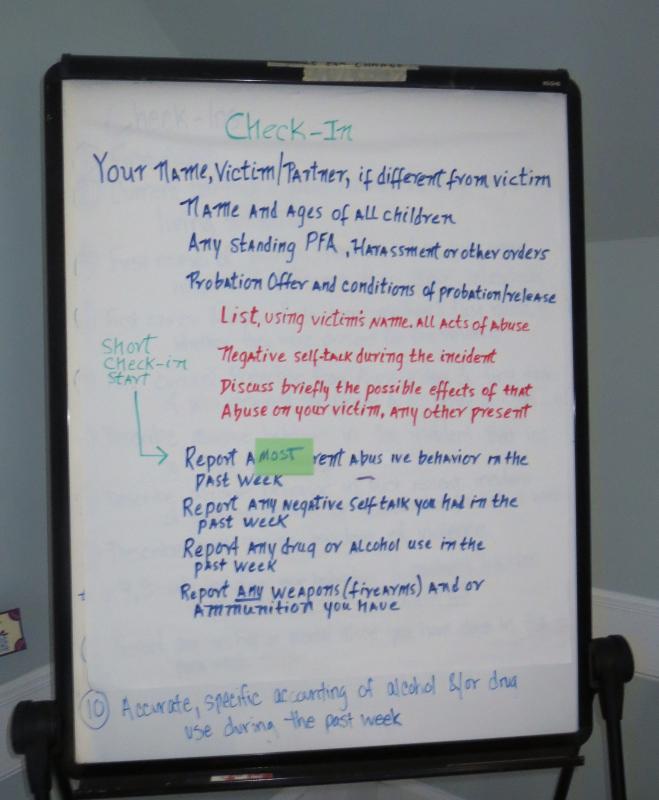 Check-In
Your Name, Victim/Partner, if different from victim
Name and Ages of All children
Any standing PFA, Harassment or other orders
Probation Offer and conditions of probation/release
List, using victim's name. All Acts of Abuse
Negative self-talk during the incident
Discuss briefly the possible effects of that
Abuse on your victim, any other present
Short
Check-in
Start
Report A MOST rent Abus ive behavior in the
past week
Report Any Negative Self-talk you had in the
past week
Report Any drug or Alcohol use in the
past week
Report Any weapons (firearms) And or
Ammunition you have
10 Accurate, specific accounting of alcohol &/or drug
use during the past week